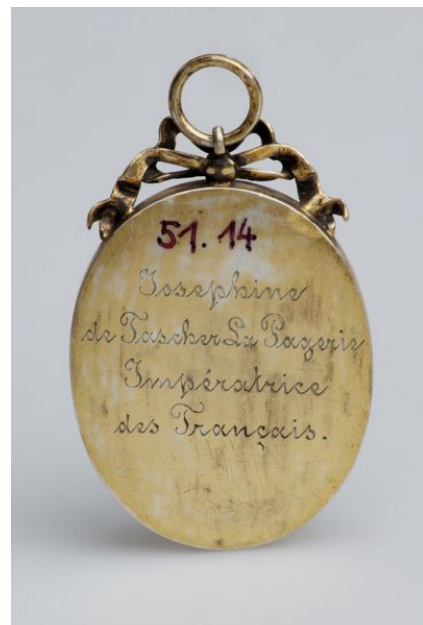 51.14
Josephine
de Tascher La Pagerie
Impératrice
des Français.